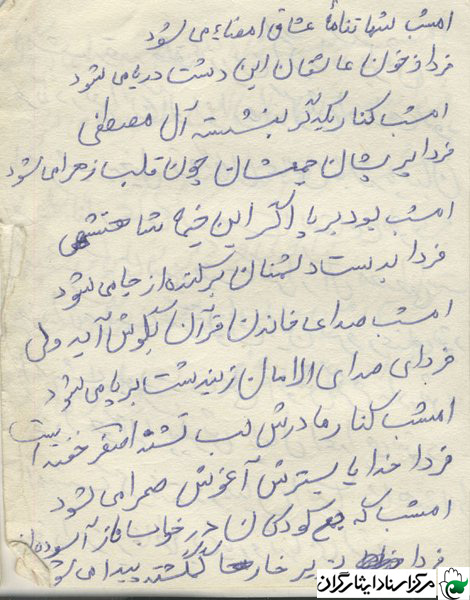 امشب شهادتنامهٔ عشاق امضاء می شود
فردا زخون عاشقان این دشت دریا می شود
امشب کنار یکدگر بنشسته آل مصطفی
فردا پریشان جمعشان چون قلب زهرا می شود
امشب بود برپا اگر این خیمه شاهنشهی
فردا بدست دشمنان برکنده از جا می شود
امشب صدای خاندن قرآن بگوش آید ولی
فردای صدای الامان زین دشت بر پا می شود
امشب کنار مادرش لب تشنه اصغر خفته است
فردا خدایا بسترش آغوش صحرا می شود
امشب که جمع کودکان در خواب ناز آسوده‌اند
فردا بزیر خارها گمگشته پیدا می شود
مرکز اسناد ایثارگران